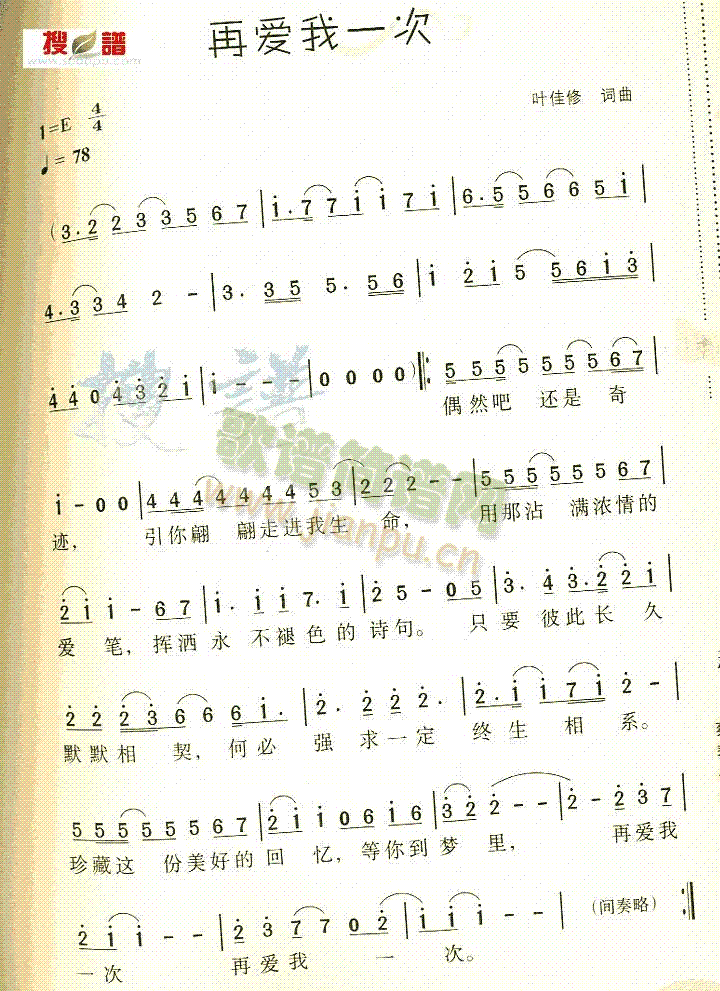 搜谱
www.sooopu.com
再爱我一次
叶佳修 词曲
1=E 4/4
♩= 78
(3.2 2 3 3 5 6 7 | i.7 7 i i 7 i | 6.5 5 5 6 6 5 i |
4.3 3 4 2 - | 3. 3 5 5. 5 6 | i 2 i 5 5 6 i 3 |
4 4 0 4 3 2 i | i - - - | 0 0 0 0 ) |: 5 5 5 5 5 5 5 6 7 |
偶然吧 还是 奇
搜 谱
歌谱简谱网
www.jianpu.cn
i - 0 0 | 4 4 4 4 4 4 4 5 3 | 2 2 2 - - | 5 5 5 5 5 5 5 6 7 |
迹， 引你翩 翩走进我生 命， 用那沾 满浓情的
2 i i - 6 7 | i. i i 7. i | 2 5 - 0 5 | 3. 4 3. 2 2 i |
爱 笔，挥洒永 不褪色的诗句。 只要 彼此长 久
2 2 2 3 6 6 6 i. | 2. 2 2 2. | 2. i i 7 i 2 - |
默默相 契，何必 强 求一定 终生 相 系。
5 5 5 5 5 5 5 6 7 | 2 i i 0 6 i 6 | 3 2 2 - - | 2 - 2 3 7 |
珍藏这 份美好的回 忆，等你到梦 里， 再爱我
2 i i - - | 2 3 7 7 0 2 | i i - - (间奏略) :|
一次 再爱我 一 次。